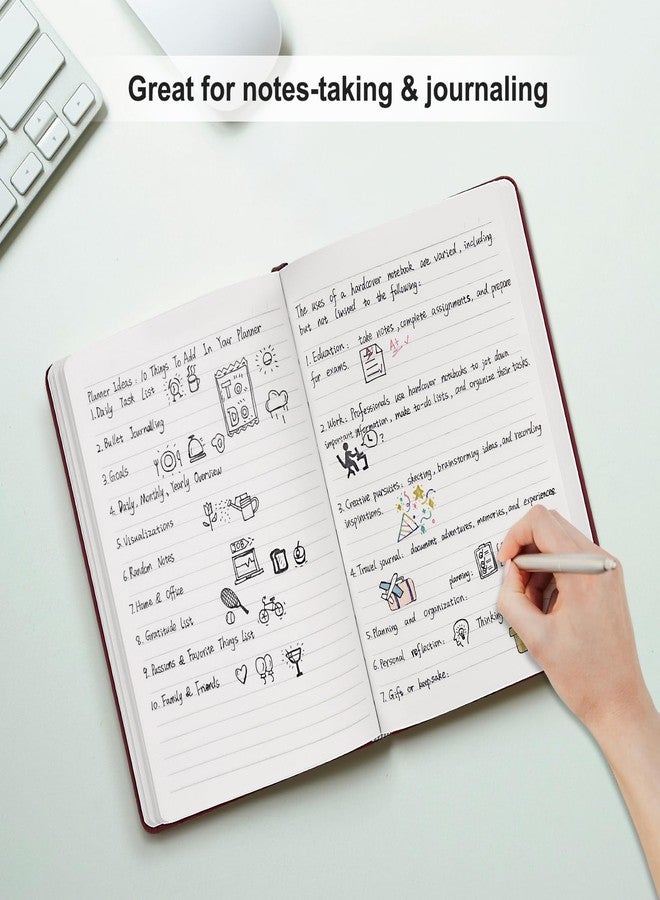 Great for notes-taking & journaling
Planner Ideas: 10 Things To Add In Your Planner
1. Daily Task List
TO
DO
2. Bullet Journalling
3. Goals
4. Daily, Monthly, Yearly Overview
5. Visualizations
6. Random Notes
JOB
7. Home & Office
8. Gratitude List
9. Passions & Favorite Things List
10. Family & Friends
The uses of a hardcover notebook are varied, including
but not limited to the following:
1. Education: take notes, complete assignments, and prepare
for exams.
A+
2. Work: Professionals use hardcover notebooks to jot down
important information, make to-do lists, and organize their tasks.
?
3. Creative pursuits: sketing, brainstorming ideas, and recording
inspirations.
4. Travel journal: document adventures, memories, and experiences.
planning:
5. Planning and organization:
6. Personal reflection: Thinking
7. Gifts or keepsake: